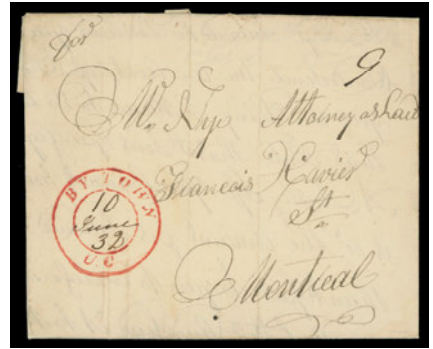 For
9
Mr. Nye Attorney at Law
Francois Xavier
St
Montreal
BY TOWN
10
June
32
U.C